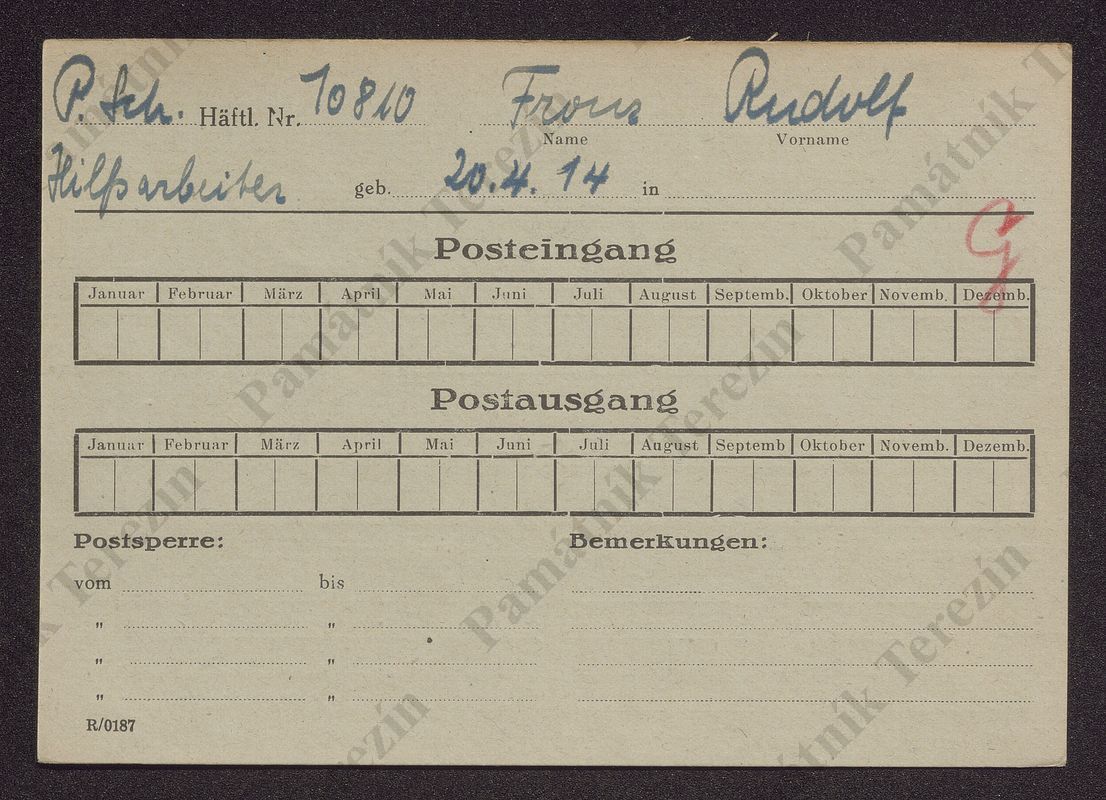 P. Sch. Häftl. Nr. 10810 Frons Rudolf
Name Vorname
Hilfsarbeiter geb. 20.4.14 in
G
Posteingang
Januar Februar März April Mai Juni Juli August Septemb. Oktober Novemb. Dezemb.
Postausgang
Januar Februar März April Mai Juni Juli August Septemb Oktober Novemb. Dezemb.
Postsperre: Bemerkungen:
vom bis
" "
" "
" "
R/0187
Památník Terezín